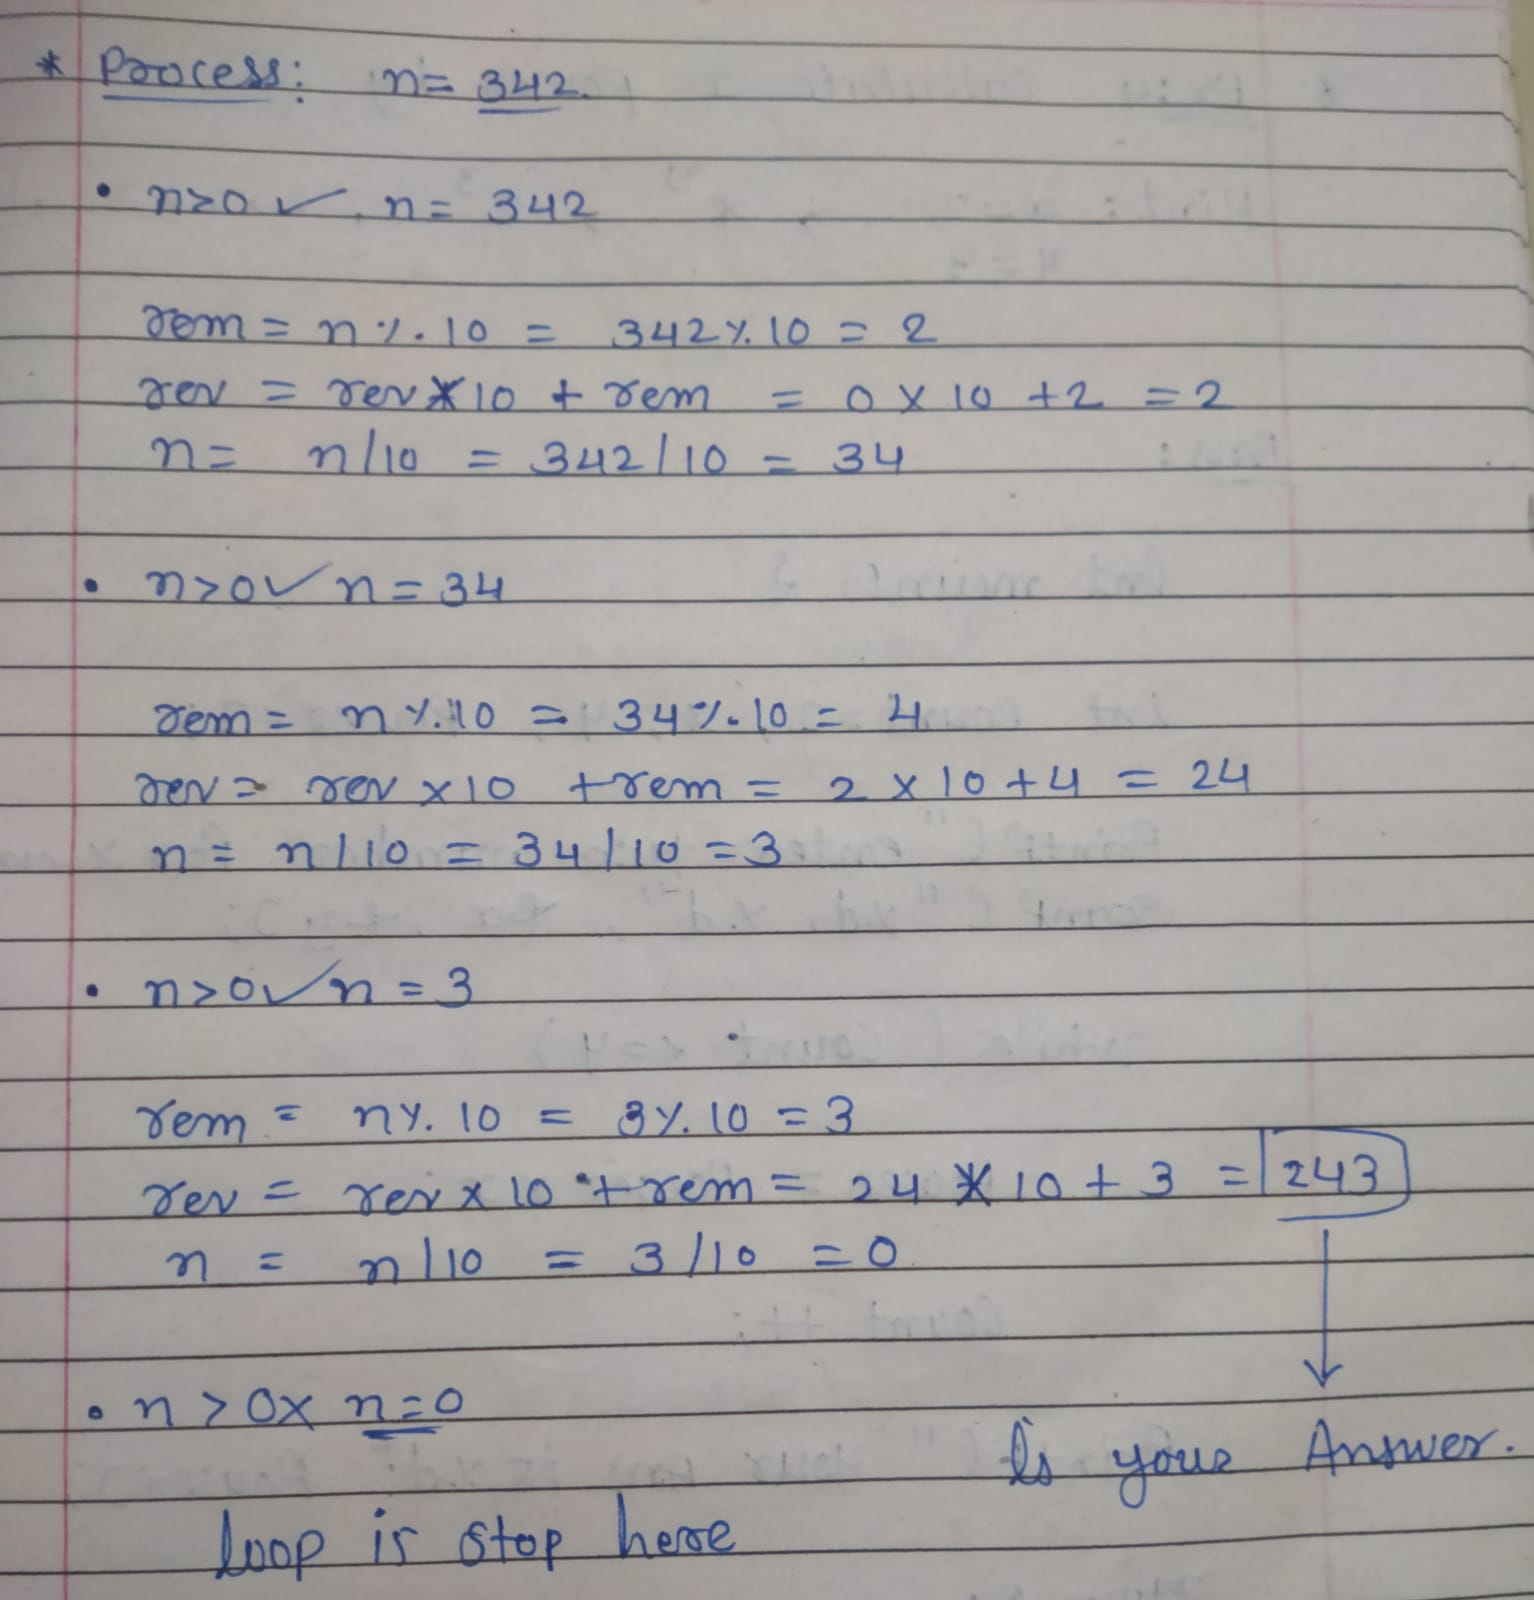 * Process: n= 342.
• n>0 ✓ n= 342
rem = n % 10 = 342 % 10 = 2
rev = rev * 10 + rem = 0 x 10 + 2 = 2
n= n/10 = 342/10 = 34
• n>0 ✓ n = 34
rem = n % 10 = 34 % 10 = 4
rev = rev x 10 + rem = 2 x 10 + 4 = 24
n = n/10 = 34/10 = 3
• n>0 ✓ n = 3
rem = n % 10 = 3 % 10 = 3
rev = rev x 10 + rem = 24 * 10 + 3 = 243
n = n/10 = 3/10 = 0
• n > 0 x n=0
Is your Answer.
loop is stop here